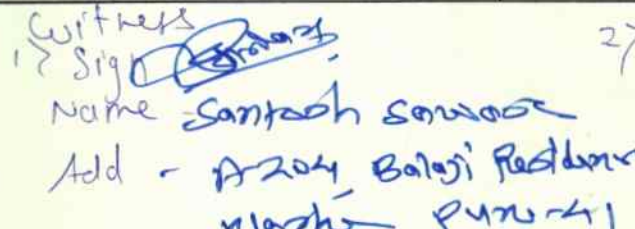 Witness 2)
1) Sign
Name Santosh
Add - A-204, Balaji Residency
Pune-41